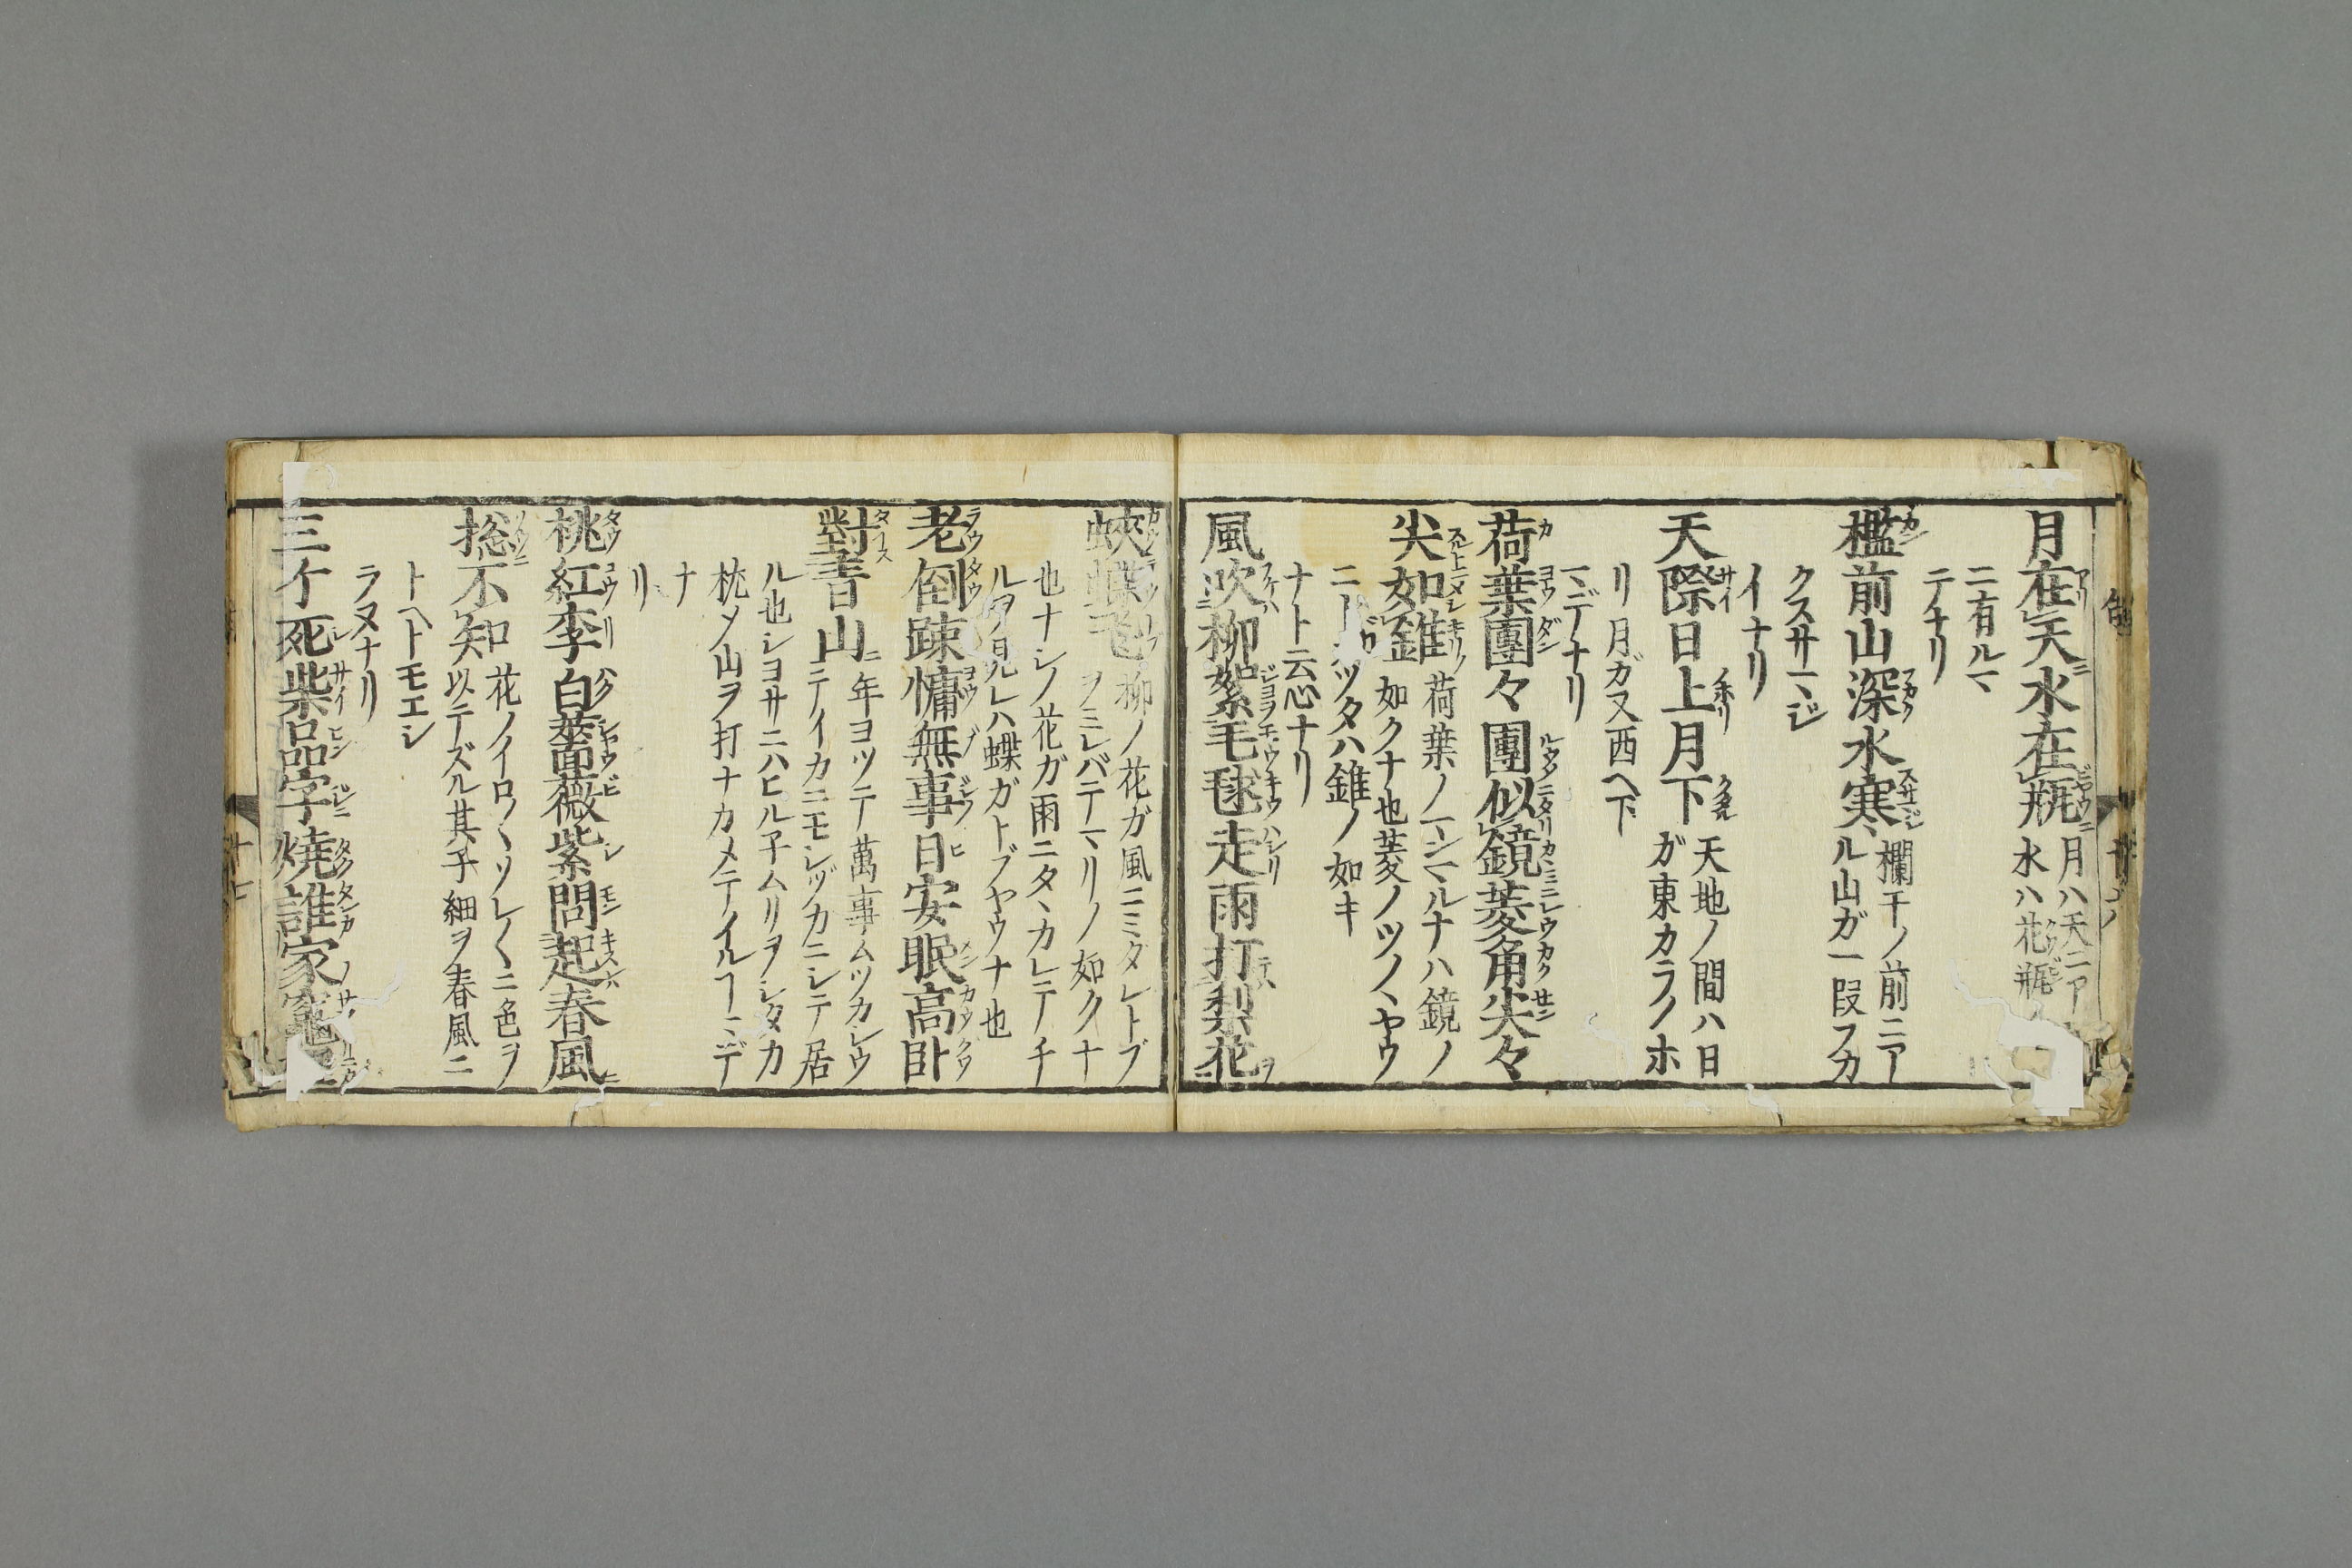 月在天水在瓶 月ハ天ニア
水ハ花瓶
ニ有ルマ
テナリ
檻前山深水寒 欄干ノ前ニア
ル山ガ一段フカ
クスサマジ
イナリ
天際日上月下 天地ノ間ハ日
ガ東カラノホ
リ月ガ又西ヘ下
マデナリ
荷葉團々團似鏡菱角尖々
尖如錐 荷葉ノマンマルナハ鏡ノ
如クナ也菱ノツノヽヤウ
ツタハ錐ノ如キ
ナト云心ナリ
風吹柳絮毛毬走雨打梨花
蛺蝶飛 柳ノ花ガ風ニミタレトブ
ヲミレバテマリノ如クナ
也ナシノ花ガ雨ニタヽカレテチ
ルヲ見レハ蝶ガトブヤウナ也
老倒疎慵無事日安眠高臥
對青山 年ヨツテ萬事ムツカシウ
ニテイカニモシヅカニシテ居
ル也シヨサニハヒル子ムリヲシタカ
枕メ山ヲ打ナカメテイルヿニデ
ナ
リ
桃紅李白薔薇紫問起春風
捴不知 花ノイロ〱ソレ〱ニ色ヲ
以テズル其子細ヲ春風ニ
トヘトモエシ
ラヌナリ
三个死柴品字燒誰家竈
十七